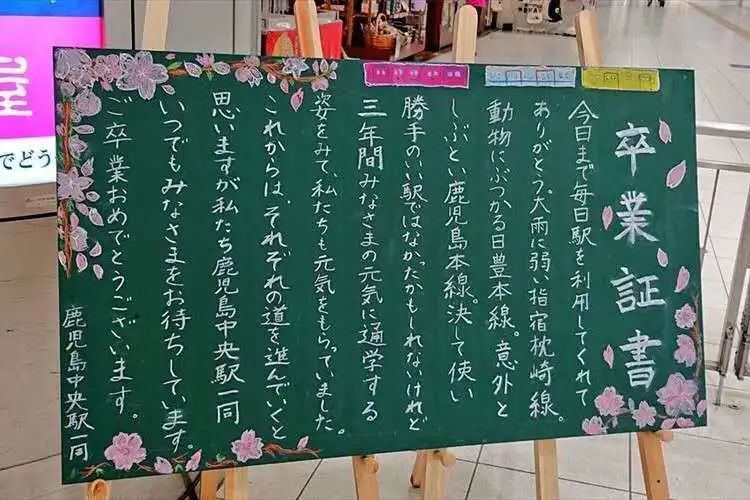 卒業証書
今日まで毎日駅を利用してくれて
ありがとう。大雨に弱い指宿枕崎線。
動物にぶつかる日豊本線。意外と
しぶとい鹿児島本線。決して使い
勝手のいい駅ではなかったかもしれないけれど
三年間みなさまの元気に通学する
姿をみて、私たちも元気をもらっていました。
これからは、それぞれの道を進んでいくと
思いますが私たち鹿児島中央駅一同
いつでもみなさまをお待ちしています。
ご卒業おめでとうございます。
鹿児島中央駅一同
でどう